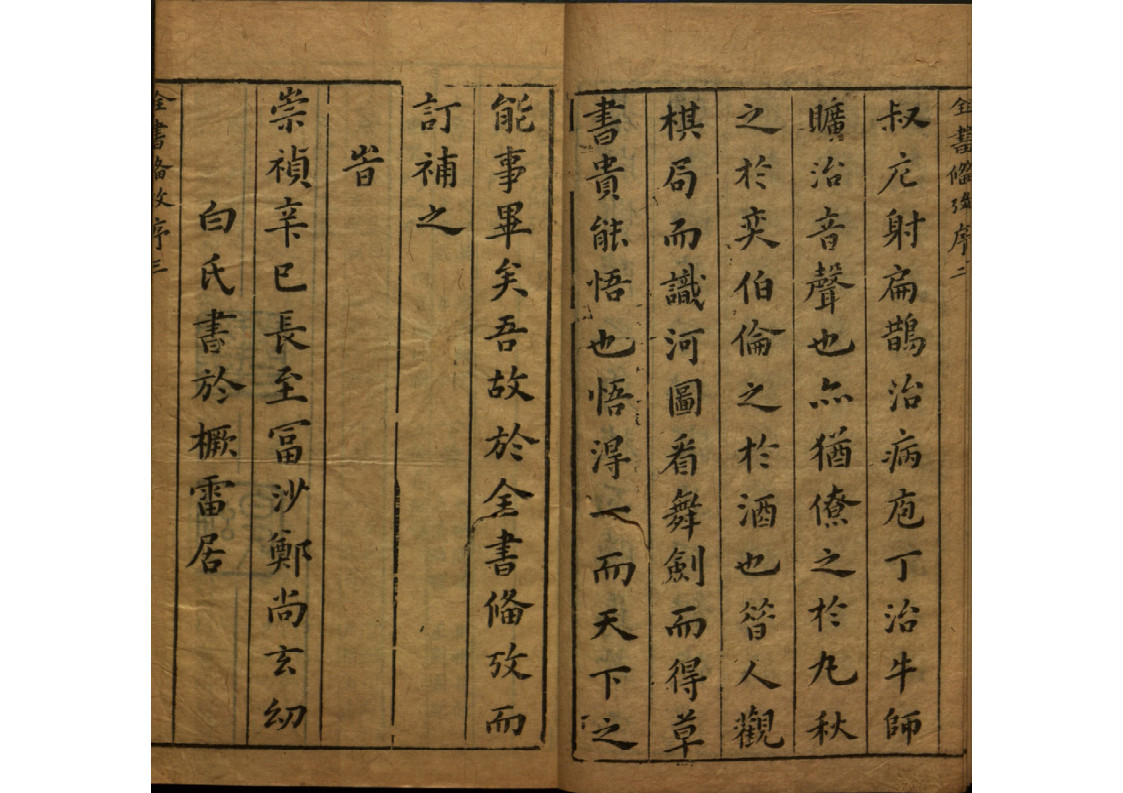 全書備攷序二
叔亢射扁鵲治病庖丁治牛師
曠治音聲也亦猶僚之於丸秋
之於奕伯倫之於酒也㫺人觀
棋局而識河圖看舞劍而得草
書貴能悟也悟淂一而天下之
能事畢矣吾故於全書俻攷而
訂補之
旹
崇禎辛巳長至冨沙鄭尚玄幼
白氏書於橛雷居
全書俻攷序三